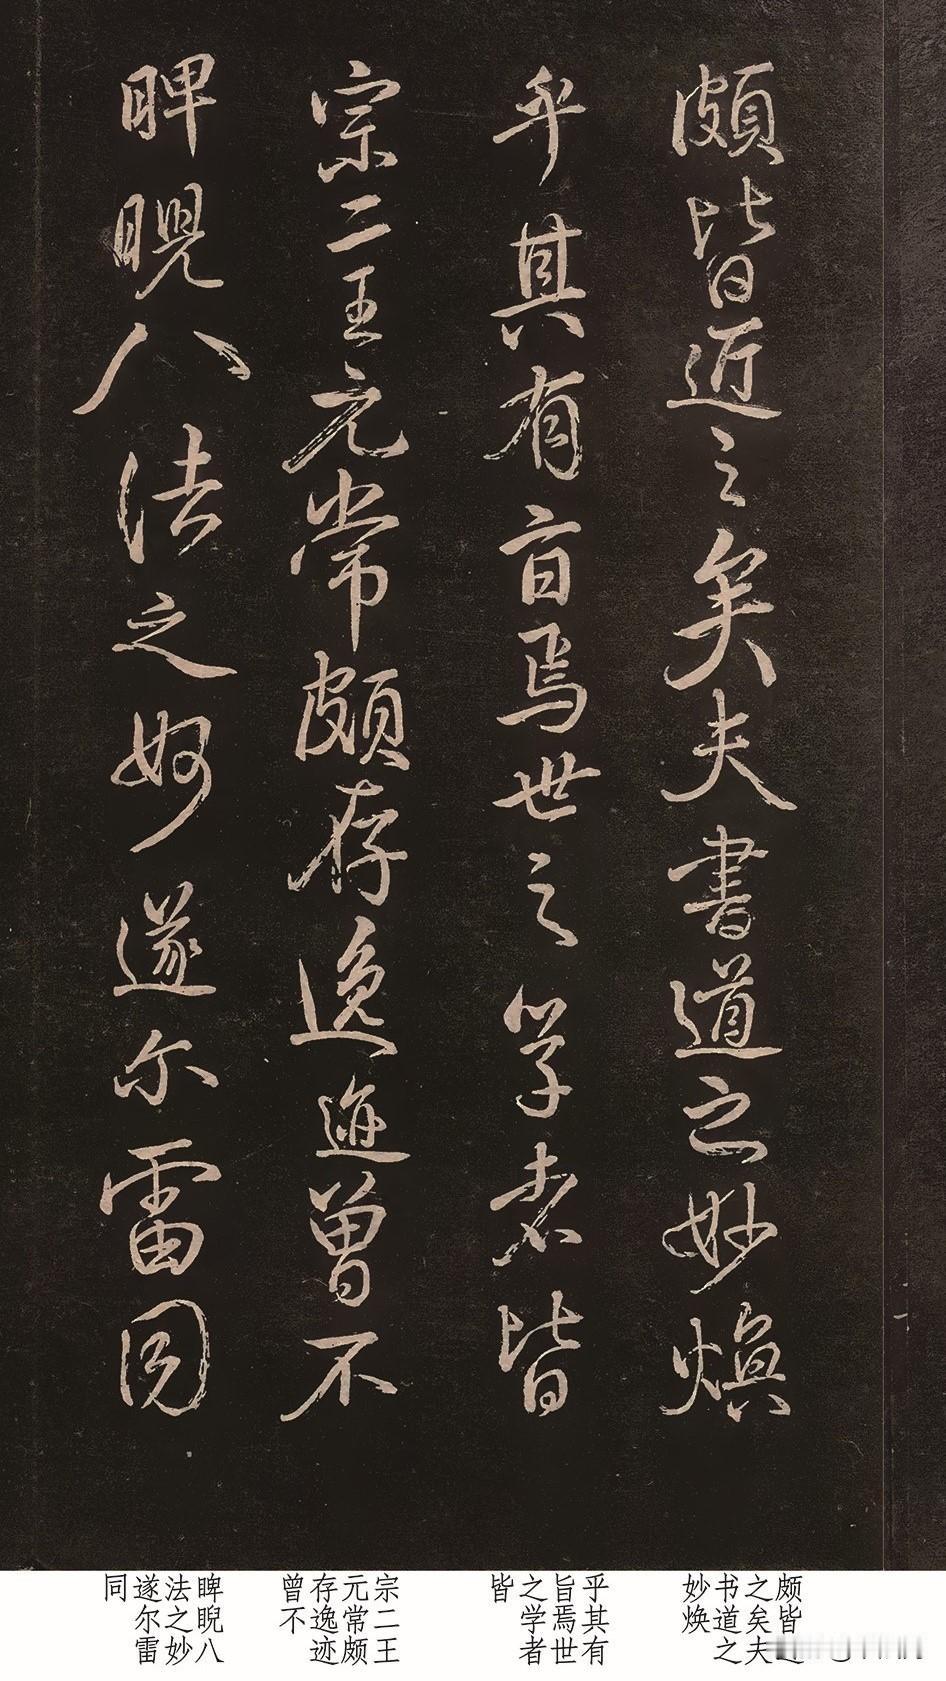 頗皆近之矣夫書道之妙焕
乎其有旨焉世之学者皆
宗二王元常頗存逸迹曾不
睥睨八法之妙遂尔雷同
颇皆
之矣夫
书道之
妙焕
乎其有
旨焉世
之学者
皆
宗二王
元常颇
存逸迹
曾不
睥睨八
法之妙
遂尔雷
同